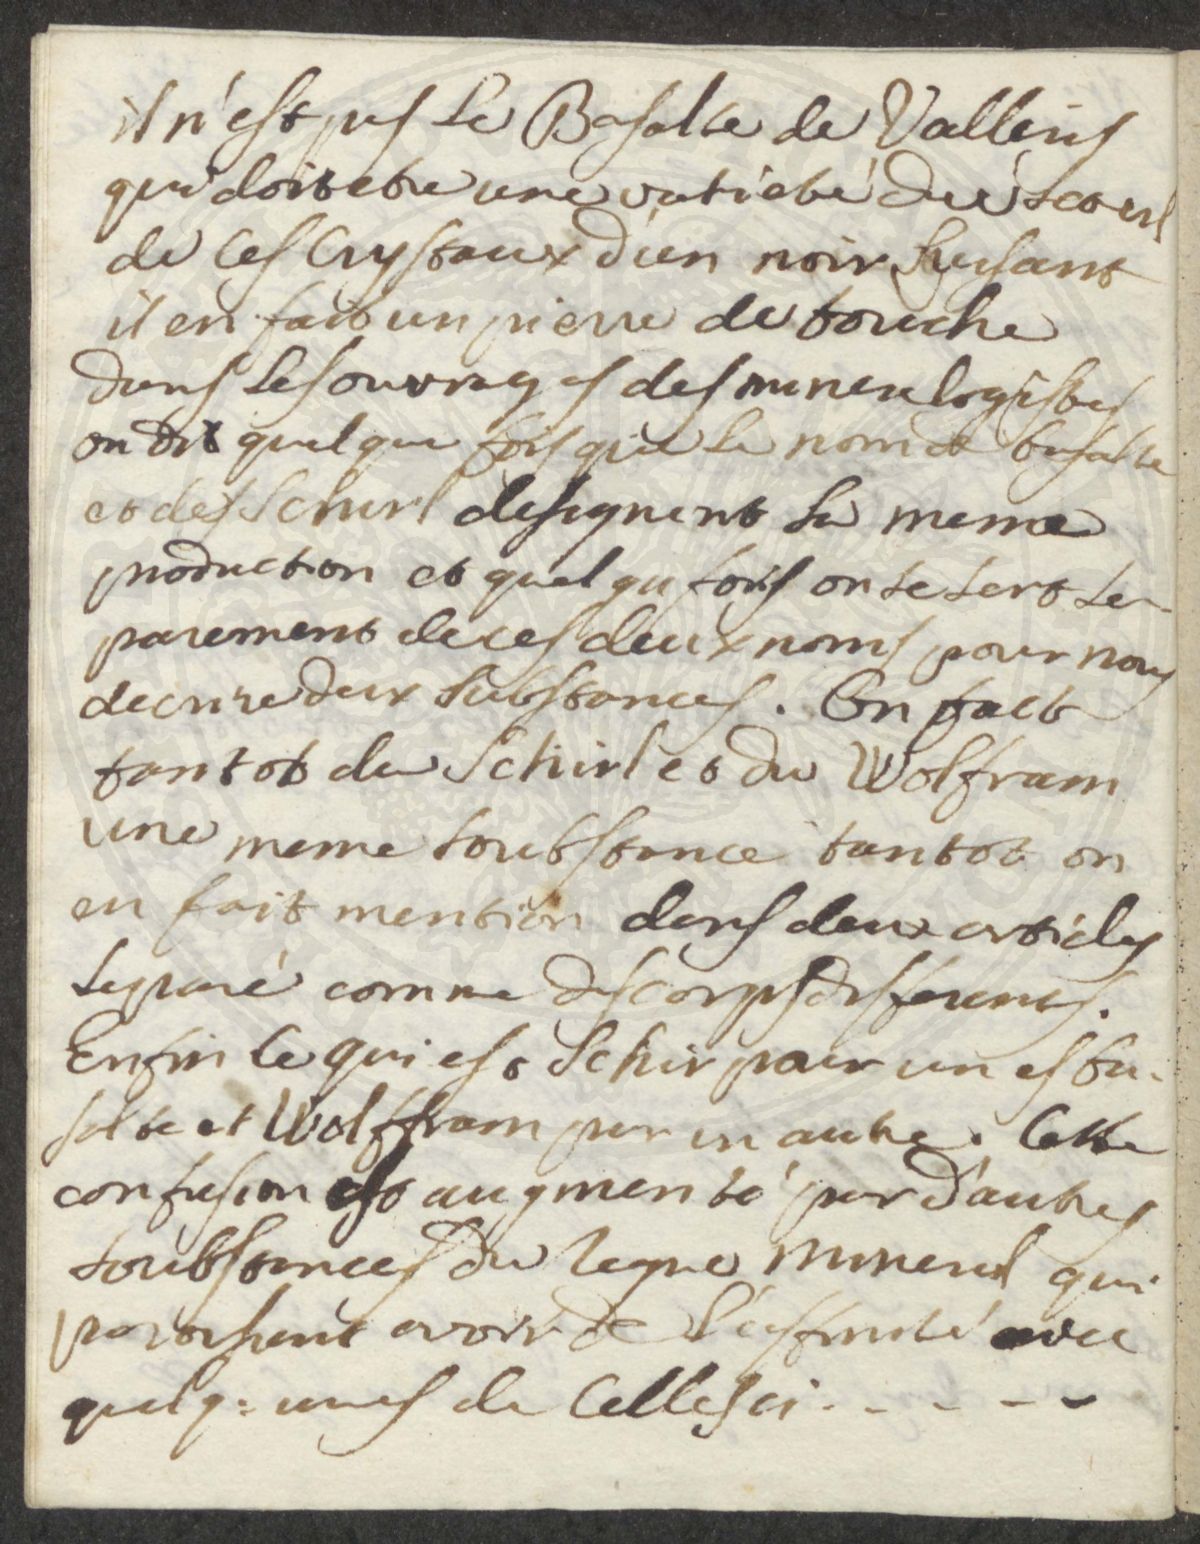 il n'est pas le Basalte de Vallerius
qui doit etre une varieté du scoerl
de ces Crystaux d'un noir luisant
il en fait un pierre de touche
dans les ouvrages des mineralogistes
on dit quelque fois que le nom de basalte
et des Schirl designent la meme
production et quelqu fois on se sert se-
parement de ces deux noms pour nous
decrire deux substances. On fait
tantot du Schirl et du Wolfram
une meme soubstance tantot on
en fait mention dans deux articles
separé comme des corps differents.
Enfin ce qui est Schir pour un est ba-
salte et Wolffram pur un autre. Cette
confusion est augmenté par d'autres
soubstances du regne mineral qui
paroissent avoir de l'affinité avec
quelq: unes de Celles ci. - - - -